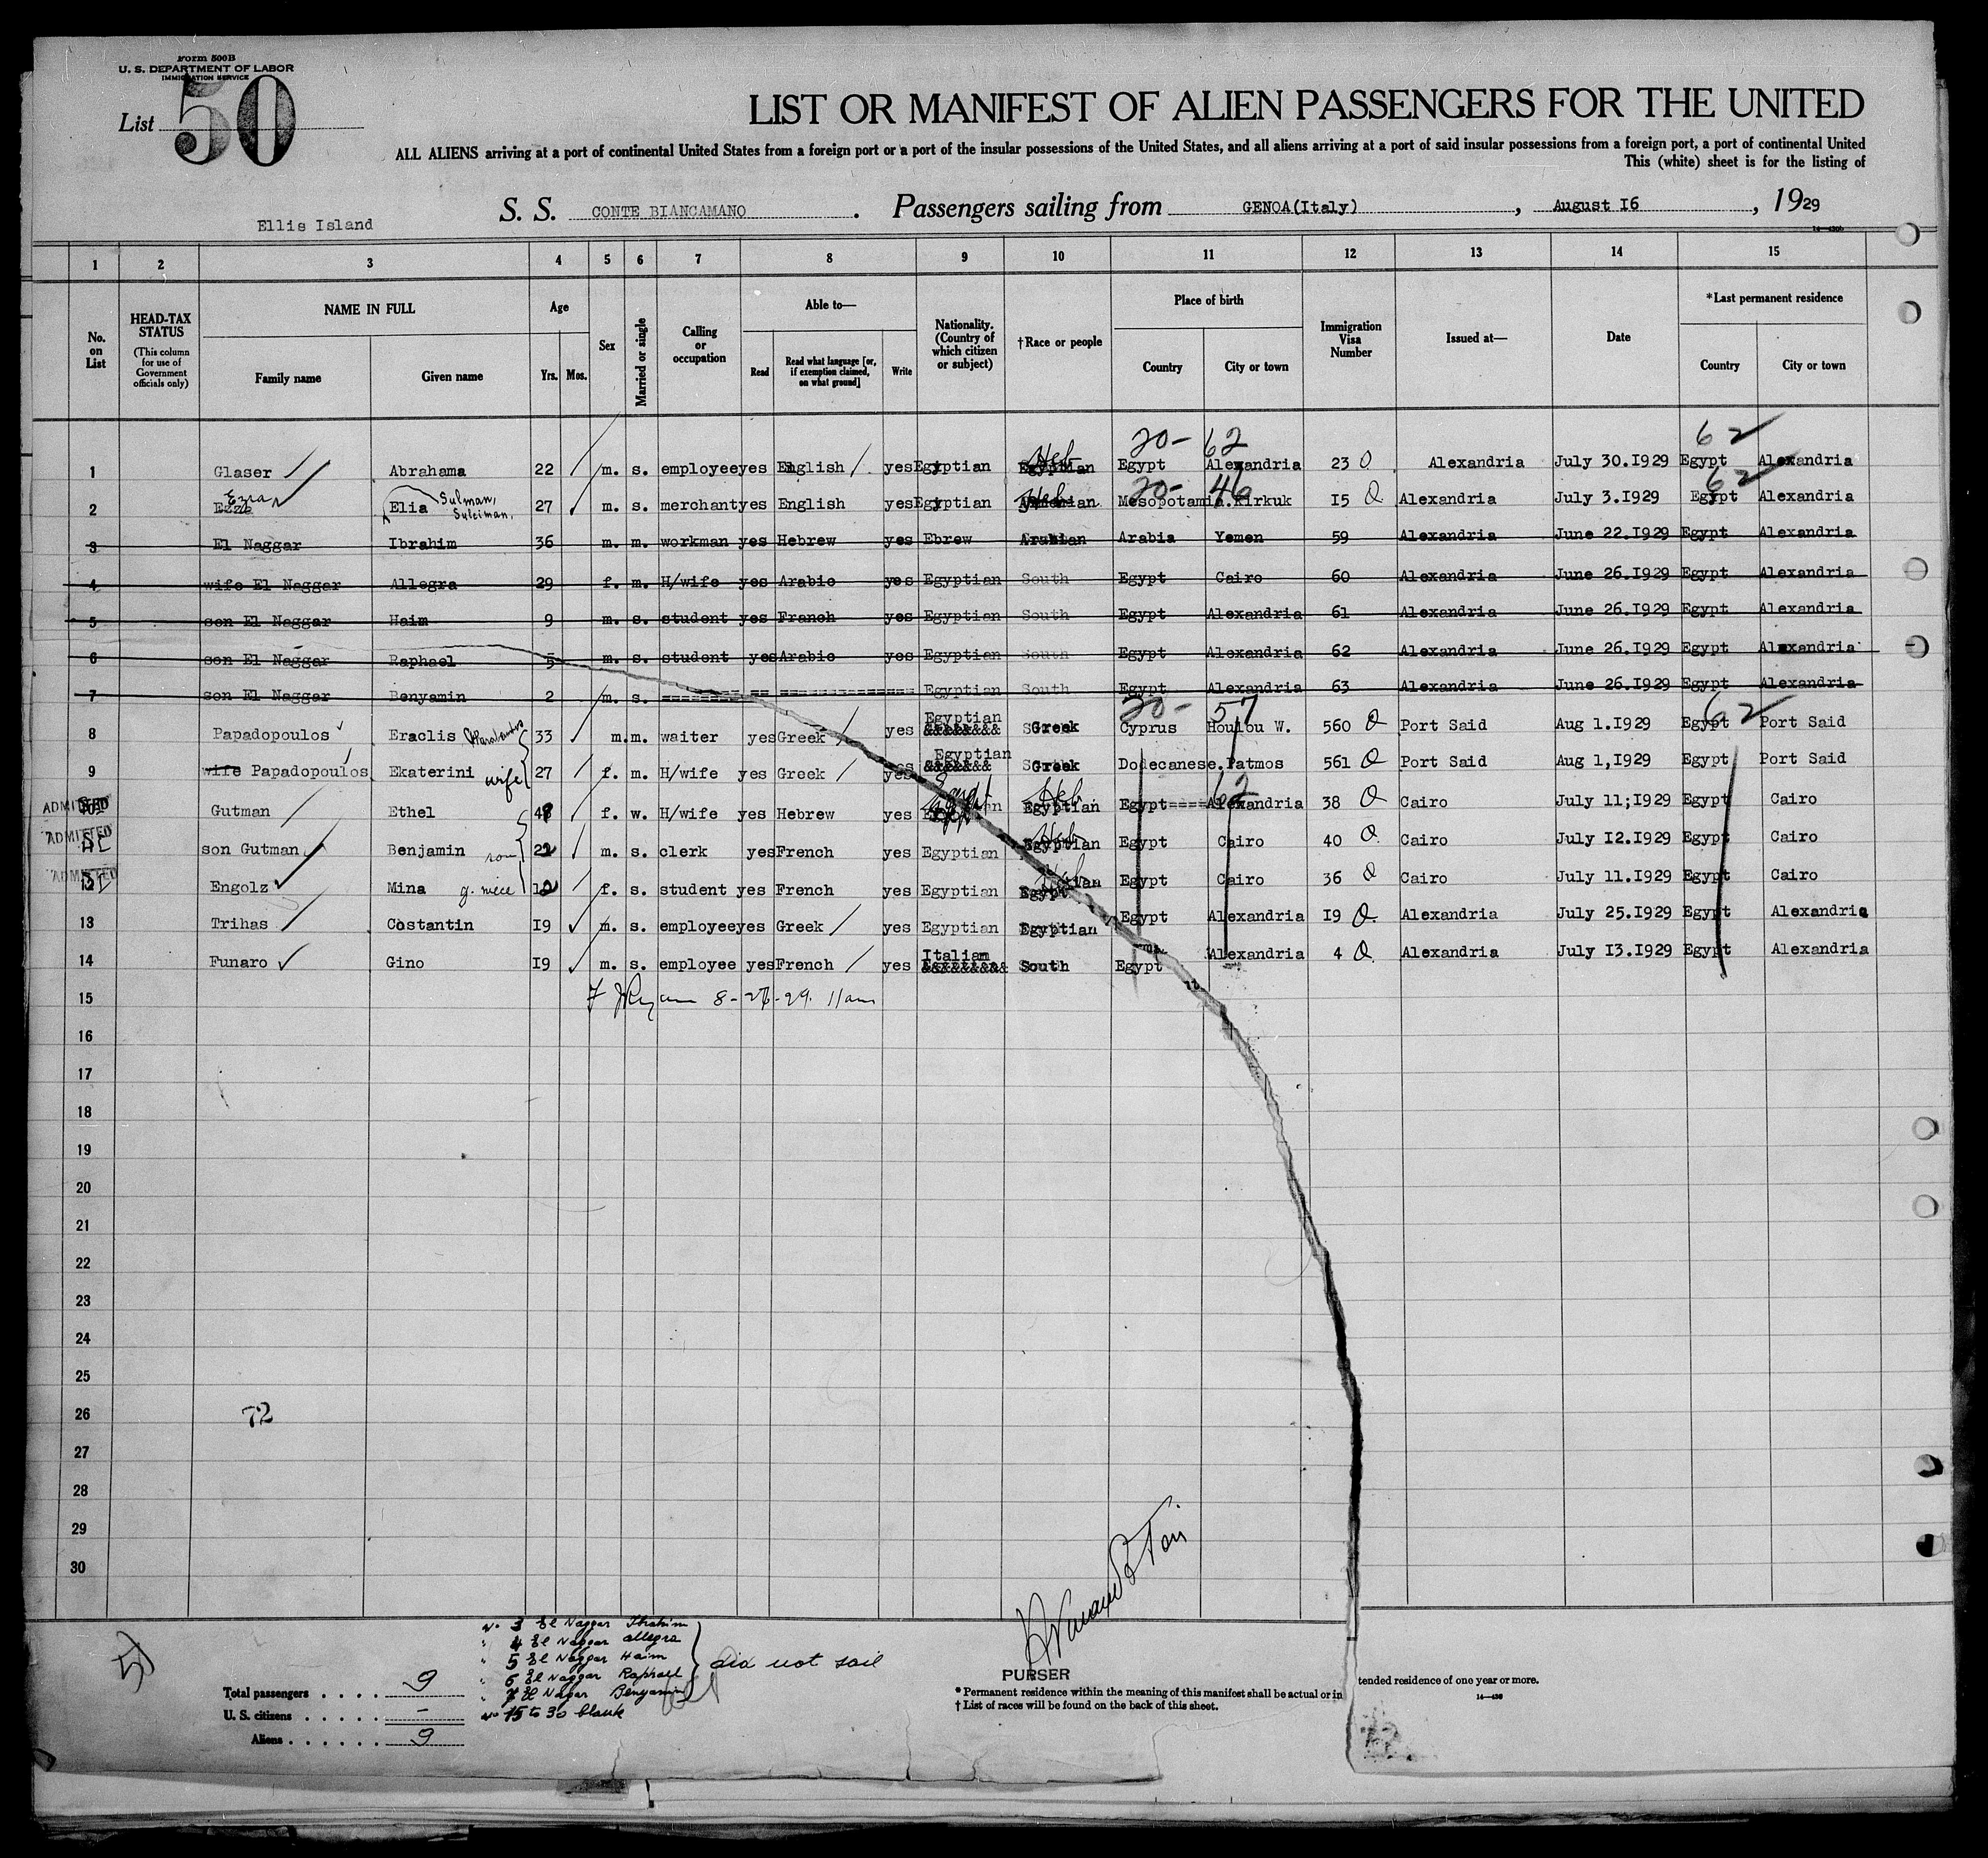 Form 500B
U. S. DEPARTMENT OF LABOR
IMMIGRATION SERVICE
List 50
LIST OR MANIFEST OF ALIEN PASSENGERS FOR THE UNITED
ALL ALIENS arriving at a port of continental United States from a foreign port or a port of the insular possessions of the United States, and all aliens arriving at a port of said insular possessions from a foreign port, a port of continental United
This (white) sheet is for the listing of
Ellis Island
S. S. CONTE BIANCAMANO . Passengers sailing from GENOA(Italy) , August I6 , 1929
14—430b
1 2 3 4 5 6 7 8 9 10 11 12 13 14 15
No. on List
HEAD-TAX STATUS (This column for use of Government officials only)
NAME IN FULL Family name Given name
Age Yrs. Mos.
Sex
Married or single
Calling or occupation
Able to— Read Read what language [or, if exemption claimed, on what ground] Write
Nationality. (Country of which citizen or subject)
†Race or people
Place of birth Country City or town
Immigration Visa Number
Issued at—
Date
*Last permanent residence Country City or town
20- 62 62
1 Glaser Abrahama 22 m. s. employee yes English yes Egyptian Heb Egypt Alexandria 23 Alexandria July 30.I929 Egypt Alexandria
20- 46 62
2 Ezra Elia Sulman, Suleiman. 27 m. s. merchant yes English yes Egyptian Heb Mesopotamia.Kirkuk I5 Alexandria July 3.I929 Egypt Alexandria
3 El Naggar Ibrahim 36 m. m. workman yes Hebrew yes Ebrew Arabia Yemen 59 Alexandria June 22.I929 Egypt Alexandria
4 wife El Naggar Allegra 29 f. m. H/wife yes Arabic yes Egyptian South Egypt Cairo 60 Alexandria June 26.I929 Egypt Alexandria
5 son El Naggar Haim 9 m. s. student yes Franch yes Egyptian South Egypt Alexandria 61 Alexandria June 26.I929 Egypt Alexandria
6 son El Naggar Raphael 5 m. s. student yes Arabic yes Egyptian South Egypt Alexandria 62 Alexandria June 26.I929 Egypt Alexandria
7 son El Naggar Benyamin 2 m. s. Egyptian South Egypt Alexandria 63 Alexandria June 26.I929 Egypt Alexandria
20- 57 62
8 Papadopoulos Eraclis 33 m. m. waiter yes Greek yes Egyptian Greek Cyprus Houlou W. 560 Port Said Aug 1.I929 Egypt Port Said
9 wife Papadopoulos Ekaterini wife 27 f. m. H/wife yes Greek yes Egyptian Greek Dodecanese.Patmos 561 Port Said Aug 1,I929 Egypt Port Said
62
ADMITTED Gutman Ethel 48 f. w. H/wife yes Hebrew yes Heb Egyptian Egypt==== Alexandria 38 Cairo July 11;I929 Egypt Cairo
ADMITTED son Gutman Benjamin son 22 m. s. clerk yes French yes Egyptian Heb Egyptian Egypt Cairo 40 Cairo July I2.I929 Egypt Cairo
ADMITTED 12 Engolz Mina g. niece f. s. student yes French yes Egyptian Egypt Cairo 36 Cairo July 11.I929 Egypt Cairo
13 Trihas Costantin I9 m. s. employee yes Greek yes Egyptian Egyptian Egypt Alexandria I9 Alexandria July 25.I929 Egypt Alexandria
14 Funaro Gino I9 m. s. employee yes French yes Italian South Egypt Alexandria 4 Alexandria July I3.I929 Egypt Alexandria
15 8-26-29. 11am
16
17
18
19
20
21
22
23
24
25
26 72
27
28
29
30
No 3 El Naggar Ibrahim
" 4 El Naggar allegra
" 5 El Naggar Haim
" 6 El Naggar Raphael
" 7 El Nagar Benyamin
did not sail
No 15 to 30 blank
Total passengers . . . . 9
U. S. citizens . . . . . –
Aliens . . . . . . 9
PURSER
* Permanent residence within the meaning of this manifest shall be actual or in tended residence of one year or more.
† List of races will be found on the back of this sheet.
14—430